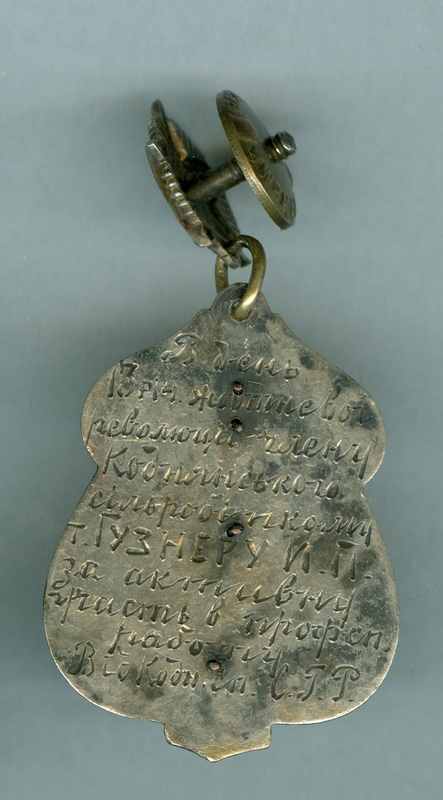 В день
13 річ. жовтневої
революції члену
Коднянського
сільробіткому
т. ГУЗНЕРУ И. П.
за активну
участь в профсп.
работу
Від Кодн. сп. С.Г.Р.